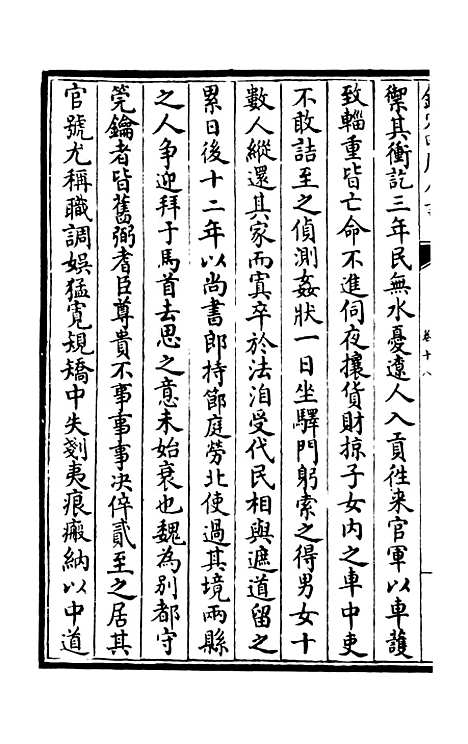 禦其衝訖三年民無水憂遼人入貢徃来官軍以車護
致輜重皆亡命不進伺夜攘貨財掠子女内之車中吏
不敢詰至之偵測姦狀一日坐驛門躬索之得男女十
數人縱還其家而寘卒於法洎受代民相與遮道留之
累日後十二年以尚書郎持節庭勞北使過其境兩縣
之人争迎拜于馬首去思之意未始衰也魏為别都守
筦鑰者皆舊弼耆臣尊貴不事事事决倅貳至之居其
官號尤稱職調娯猛寛規矯中失剗夷痕瘢納以中道
卷十八